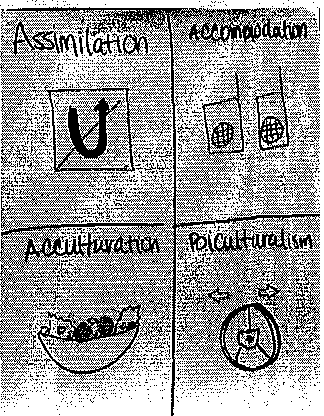 Assimilation
Accomodation
Acculturation
Polculturalism